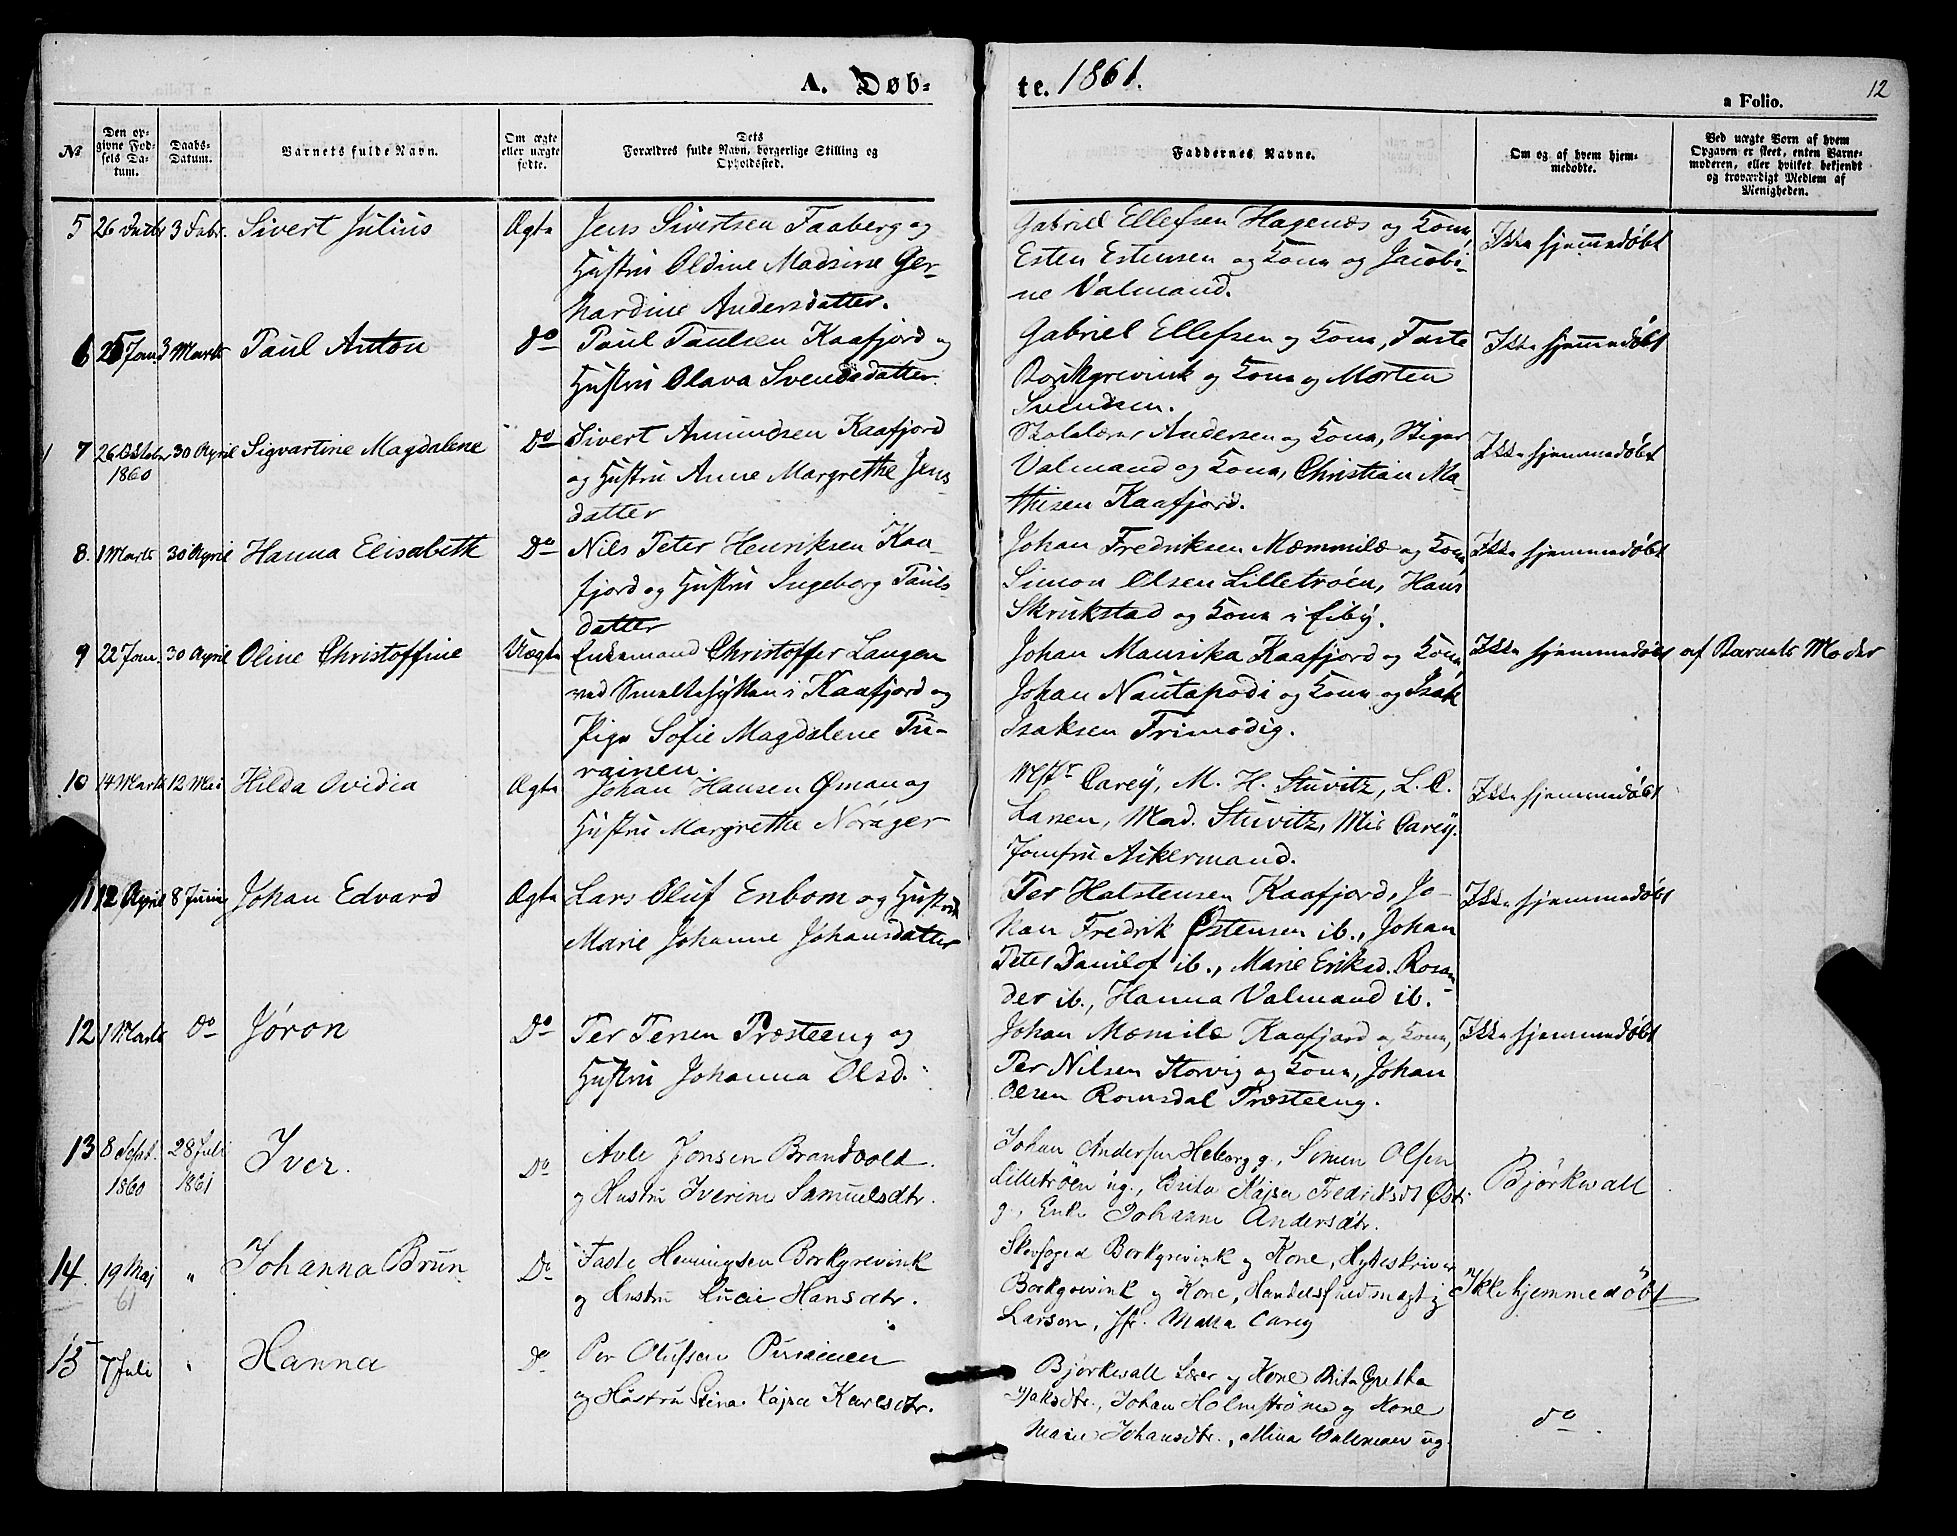 A. Døb=
te. 1861.
12
a Folio.
№
Den op-
givne Fød-
sels Da-
tum.
Daabs-
Datum.
Barnets fulde Navn.
Om ægte
eller uægte
fødte.
Dets
Forældres fulde Navn, borgerlige Stilling og
Opholdssted.
Faddernes Navne.
Om og af hvem hjem-
medøbte.
Ved uægte Børn af hvem
Opgaven er skeet, enten Barne-
moderen, eller hvilket bekjendt
og troværdigt Medlem af
Menigheden.
5 3 Febr. Sivert Julius Ægte Jens Sivertsen Faaberg og
Hustru Oldine Madsine Ger-
hardine Andersdatter.
Gabriel Ellefsen Hagenæs og Kone,
Esten Estensen og Kone og Jacobi-
ne Valmand.
Ikke hjemmedøbt
6 25 Jan 3 Marts Paul Anton Do Paul Paulsen Kaafjord og
Hustru Olava Svendsdatter.
Gabriel Ellefsen og Kone, Faste
Borkgrevink og Kone og Morten
Svendsen.
Ikke hjemmedøbt
7 26 Octobr 30 April Sigvartine Magdalene Do Sivert Amundsen Kaafjord
1860
og Hustru Anne Margrethe Jens-
datter
Skolelærer Andersen og Kone, Stiger
Valmand og Kone, Christian Ma-
thisen Kaafjord.
Ikke hjemmedøbt
8. 1 Marts 30 April Hanna Elisabeth Do Nils Peter Henriksen Kaa-
fjord og Hustru Ingeborg Pauls-
datter
Johan Fredriksen Mæmmilæ og Kone,
Simon Olsen Lilletrøen, Hans
Skrukstad og Kone i Eiby.
Ikke hjemmedøbt
9 22 Jan. 30 April Oline Christoffine Uægte Enkemand Christoffer Langen
ved Smeltehytten i Kaafjord og
Pige Sofie Magdalene Pu-
rainen.
Johan Mausika Kaafjord og Kone,
Johan Nautapodi og Kone og Isak
Isaksen Frimodig.
Ikke hjemmedøbt af Barnets Moder
10 14 Marts 12 Mai Hilda Ovidia Ægte Johan Hansen Øman og
Hustru Margrethe Norager
Mstr Carey, M. H. Stuvitz, L. C.
Larsen, Mad. Stuvitz, Mis Carey.
Jomfru Akermand.
Ikke hjemmedøbt
11 12 April 8 Juni Johan Edvard Ægte Lars Oluf Enbom og Hustru
Marie Johanne Johansdatter
Per Halstensen Kaafjord, Jo-
han Fredrik Østensen ib., Johan
Peter Danilof ib., Marie Eriksd. Rosan-
der ib., Hanna Valmand ib.
Ikke hjemmedøbt
12 1 Marts Do Jøron Do Per Persen Præsteeng og
Hustru Johanna Olsd.
Johan Mæmilæ Kaafjord og Kone,
Per Nilsen Storvig og Kone, Johan
Olsen Romsdal Præsteeng.
Ikke hjemmedøbt
13 8 Sept. 28 Juli Iver. Do Avle Jonsen Brandvold
1860 1861
og Hustru Iverine Samuelsdtr.
Johan Andersen Heborg g., Simen Olsen
Lilletrøen ug., Brita Kajsa Fredriksdt
g., Enke Johanne Andersdtr.
Bjørkwall
14. 19 Maj " Johanna Brun Do Faste Henningsen Borkgrevink
61
og Hustru Lucie Hansdtr.
Skovfoged Borkgrevink og Kone, Hytteskriver
Borkgrevink og Kone, Handelsfuldmægtig
Larson, Jfr. Carey
Ikke hjemmedøbt
15 7 Juli " Hanna Do Per Olufsen Purainen
og Hustru Stina Kajsa Karlsdtr.
Bjørkwall Lærer og Kone Brita Gretha
Isaksdtr., Johan Holmstrøm og Kone
Maria Johansdtr., Mina Valeman ug.
do.